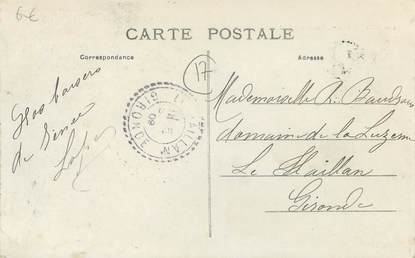 6€
CARTE POSTALE
Correspondance
Adresse
17
Gros baisers
de
HAILLAN
GIRONDE
09
Mademoiselle
domaine de la Luzerne
Le Haillan
Gironde